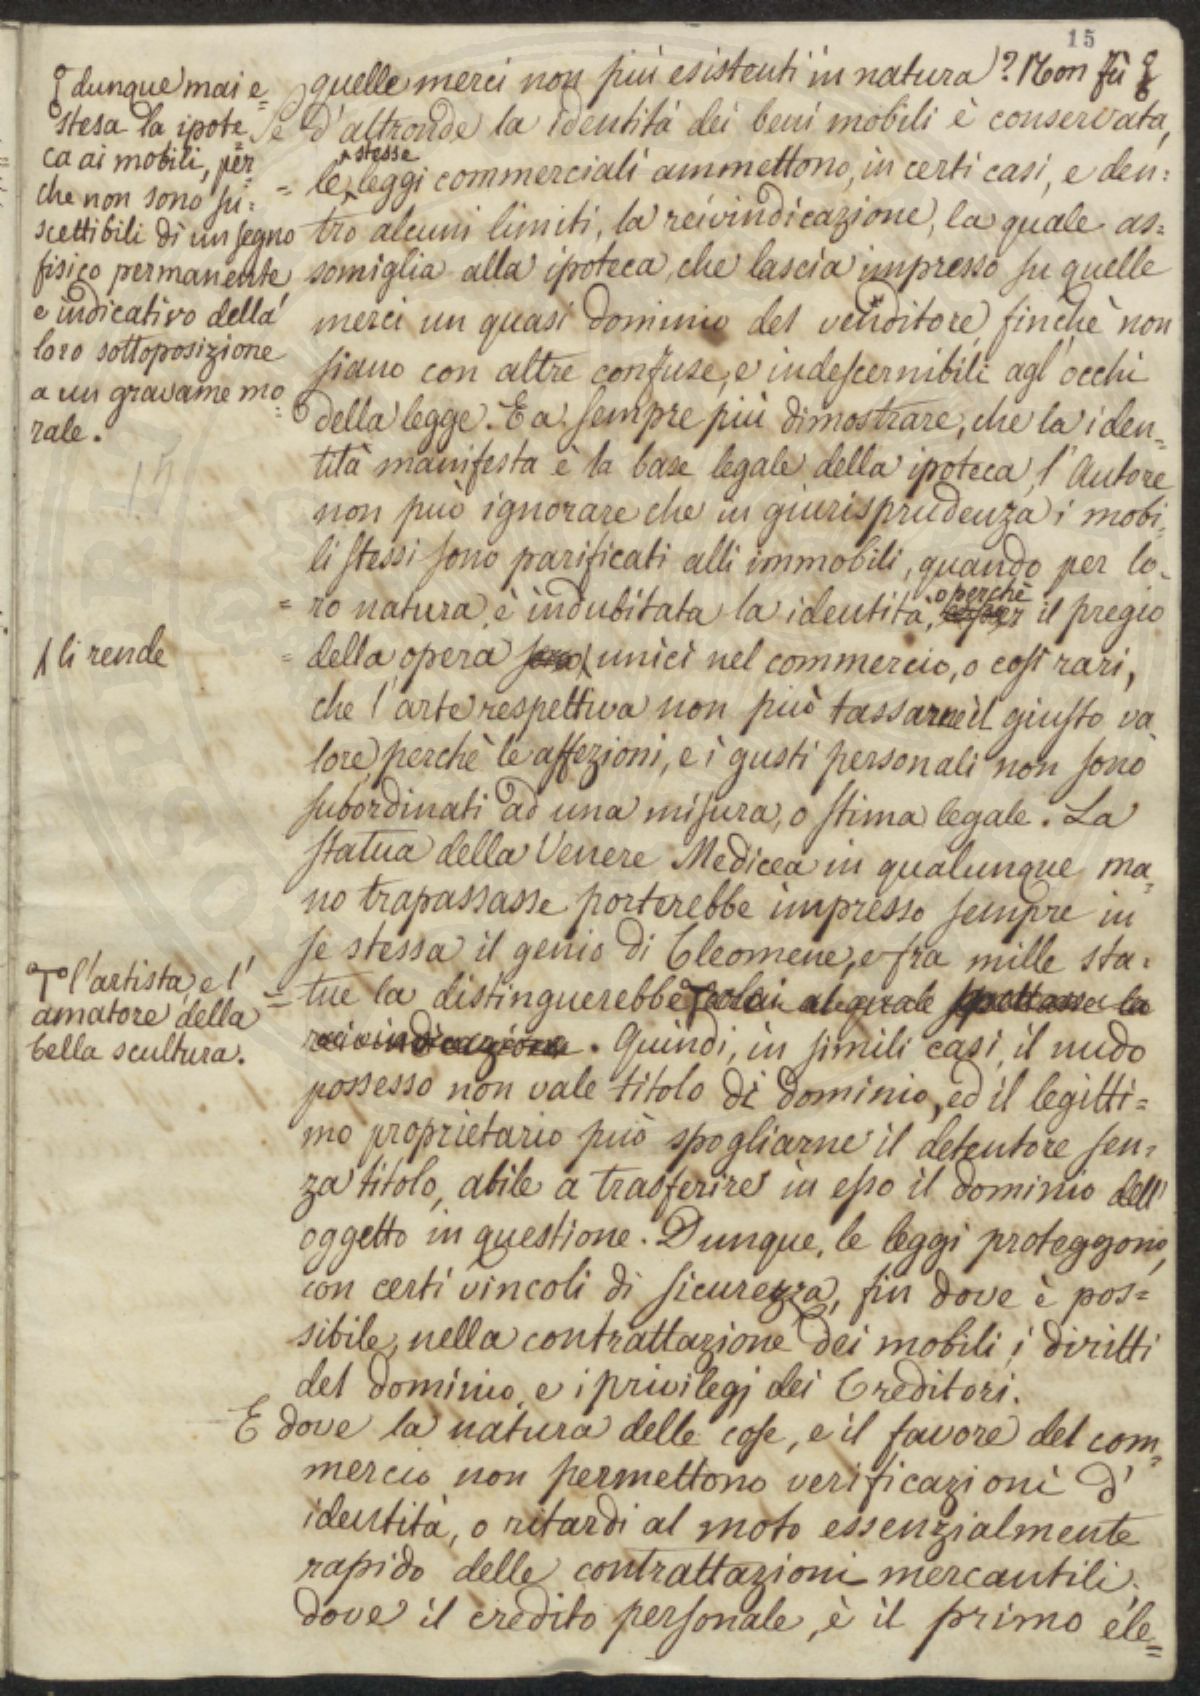 15
quelle merci non più esistenti in natura? Non fù
Se d'altronde la identità dei beni mobili è conservata,
stesse
le leggi commerciali ammettono, in certi casi, e den=
tro alcuni limiti, la reivindicazione, la quale as=
somiglia alla ipoteca, che lascia impresso su quelle
merci un quasi dominio del venditore, finchè non
siano con altre confuse, e indescernibili agl'occhi
della legge. E a sempre più dimostrare, che la iden=
tità manifesta è la base legale della ipoteca, l'Autore
non può ignorare che in giurisprudenza i mobi=
li stessi sono parificati alli immobili, quando per lo=
o perchè
ro natura, è indubitata la identità, il pregio
della opera sono unici nel commercio, o così rari,
che l'arte respettiva non può tassarne il giusto va=
lore, perchè le affezioni, e i gusti personali non sono
subordinati ad una misura, o stima legale. La
statua della Venere Medicea in qualunque ma=
no trapassasse porterebbe impresso sempre in
se stessa il genio di Cleomene, e fra mille sta=
tue la distinguerebbe colui al quale spettasse la
reivindicazione. Quindi, in simili casi, il nudo
possesso non vale titolo di dominio, ed il legitti=
mo proprietario può spogliarne il detentore sen=
za titolo, abile a trasferire in esso il dominio dell'
oggetto in questione. Dunque, le leggi proteggono,
con certi vincoli di sicurezza, fin dove è pos=
sibile, nella contrattazione dei mobili, i diritti
del dominio, e i privilegj dei Creditori.
E dove la natura delle cose, e il favore del com=
mercio non permettono verificazioni d'
identità, o ritardi al moto essenzialmente
rapido delle contrattazioni mercantili,
dove il credito personale, è il primo ele=
dunque mai e=
stesa la ipote=
ca ai mobili, per=
che non sono su=
scettibili di un segno
fisico permanente
e indicativo della
loro sottoposizione
a un gravame mo=
rale.
li rende
l'artista, e l'
amatore della
bella scultura.